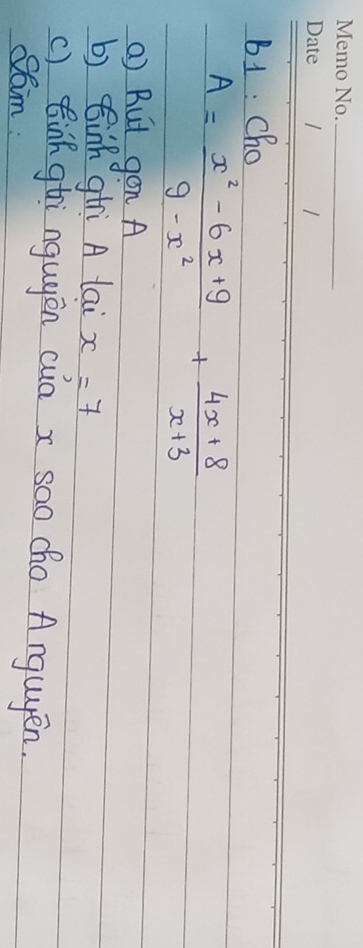 Memo No.
Date / /
B1 : Cho
A = x² - 6x + 9 / 9 - x² + 4x + 8 / x + 3
a) Rút gọn A
b) Tính gtri A tại x = 7
c) Tính gtri nguyên của x sao cho A nguyên.
Làm :